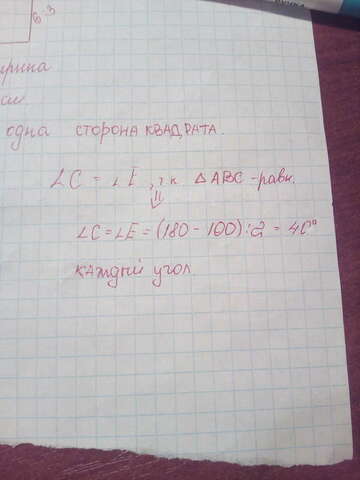 6 3
ал
одна сторона квадрата.
∠C = ∠E, т.к. △ABC - равн.
⇓
∠C = ∠E = (180 - 100) : 2 = 40°
каждый угол